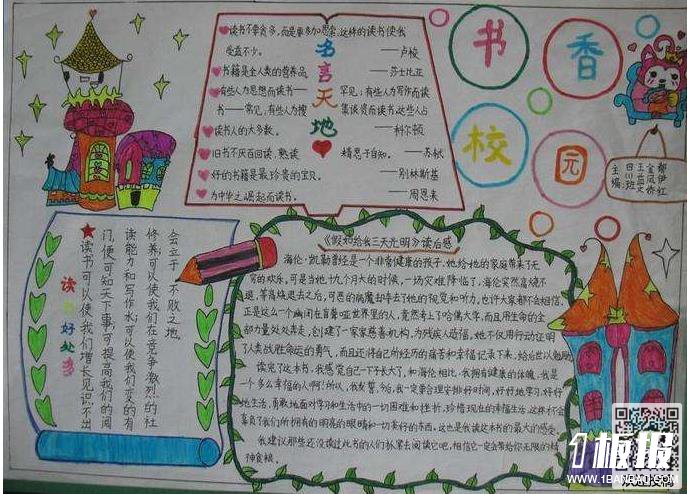 书香校园
名言天地
读书不要贪多,而是要多加思索,这样的读书使我
受益不少。 ——卢梭
书籍是全人类的营养品 ——莎士比亚
有些人为思想而读书—— 罕见;有些人为写作而读
书——常见;有些人为搜 集谈资而读书,这些人占
读书人的大多数。 ——科尔顿
旧书不厌百回读,熟读 精思子自知。——苏轼
好的书籍是最珍贵的宝贝。 ——别林斯基
为中华之崛起而读书。 ——周恩来
主编
读书好处多
★读书可以使我们增长见识不出
门,便可知天下事;可提高我们的阅
读能力和写作水;可以使我们变的有
修养;可以使我们在竞争激烈的社
会立于不败之地。
《假如给我三天光明》读后感
海伦·凯勒曾经是一个非常健康的孩子,她给她的家庭带来了无
穷的欢乐,可是当她十九个月大的时候,一场灾难降临了,海伦突然高烧不
退,等高烧退去之后,可恶的病魔却夺去了她的视觉和听力,也许大家都不会相信,
正是这么一个幽闭在盲聋哑世界里的人,竟然考上了哈佛大学,而且用生命的全
部力量处处奔走,创建了一家家慈善机构,为残疾人造福,她不仅用行动证明
了人类战胜命运的勇气,而且还将自己所经历的痛苦和幸福记录下来,给后世以勉励。
读完了这本书,我感觉自己一下子长大了,和海伦相比,我拥有健康的体魄,我是
一个多么幸福的人啊!所以,我发誓,今后,我一定要合理安排好时间,好好地学习,好好
地生活,勇敢地面对学习和生活中的一切困难和挫折,珍惜现在的幸福生活,这样才不会
辜负了我们所拥有的明亮的眼睛和一切美好的东西,这也是我读这本书的最大的感受。
我建议那些还没读过此书的人们抓紧去阅读它吧,相信它一定会带给你无限的精
神食粮。
板报
WWW.1BANBAO.COM